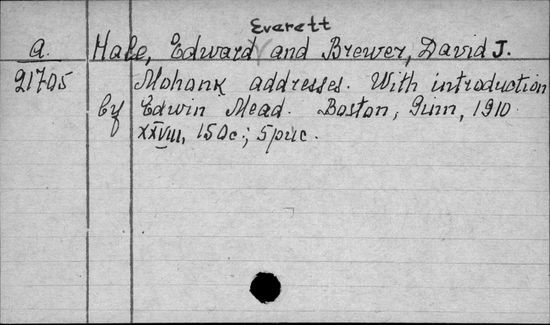 Everett
a. Hale, Edward and Brewer, David J.
21705 Mohonk addresses. With introduction
by Edwin Mead. Boston, Ginn, 1910
XXVIII, 150c.; 5рис.